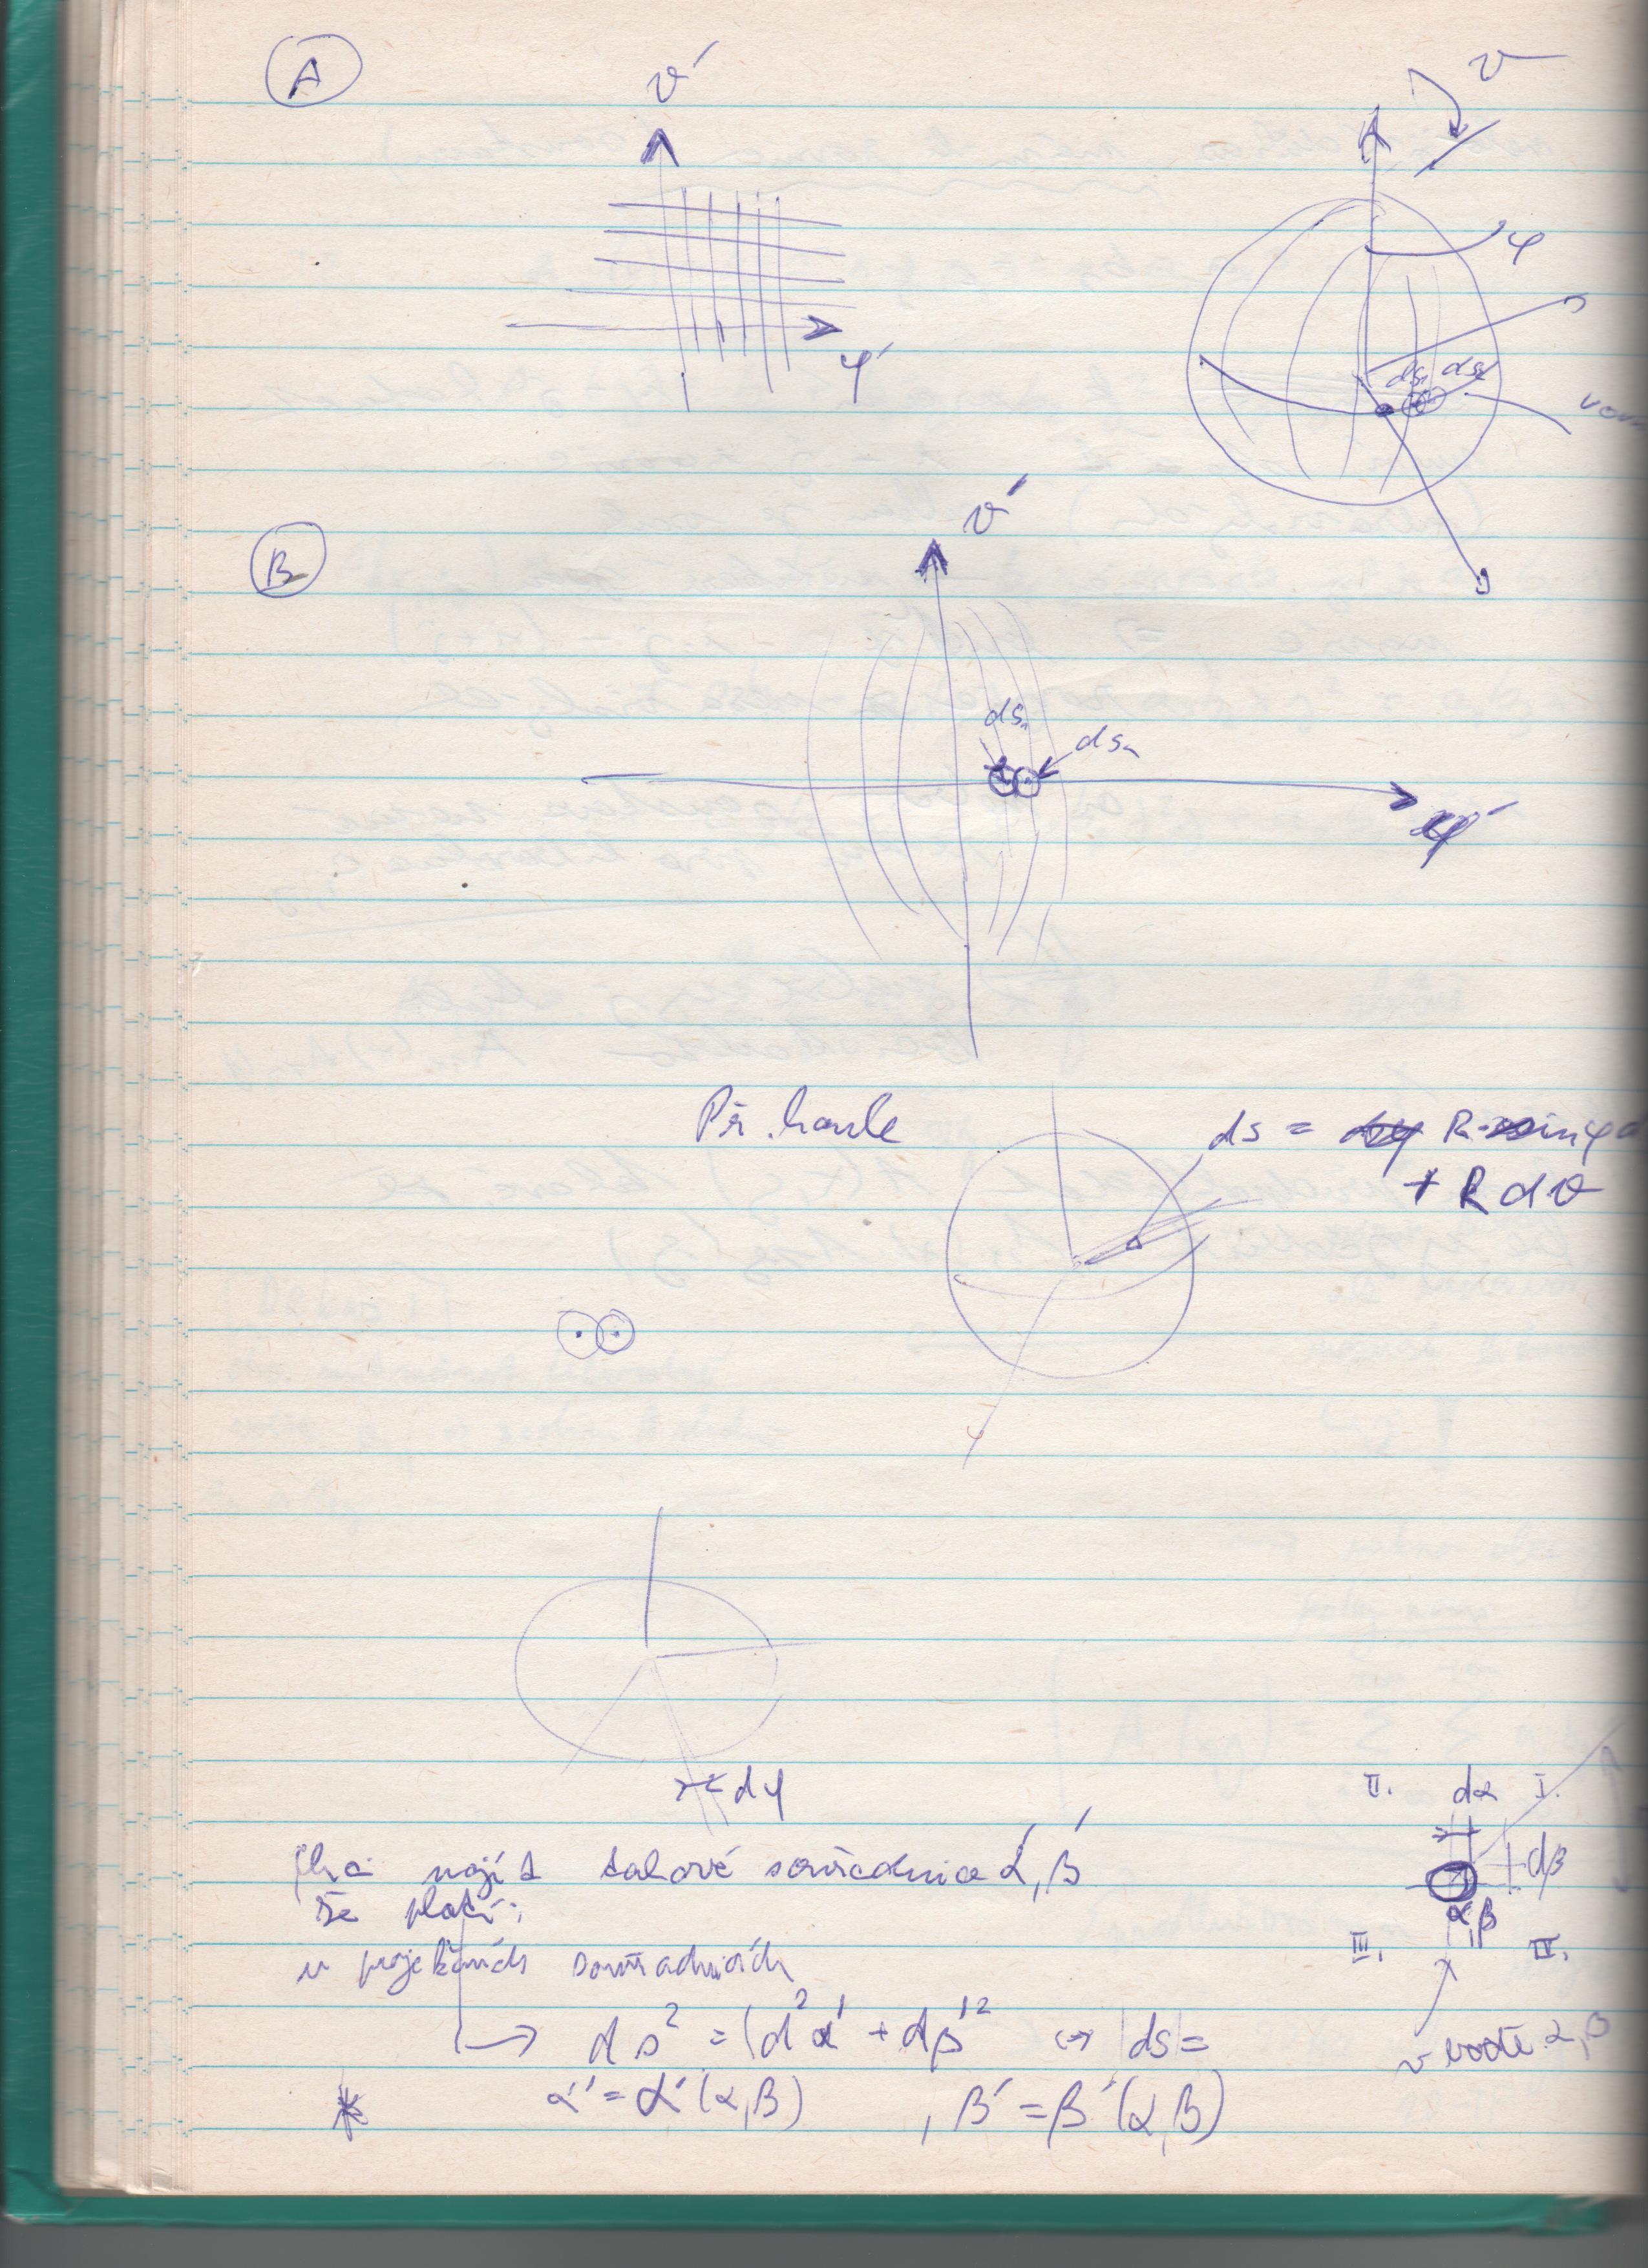 A
ϑ'
φ'
ϑ
φ
ds₁ ds₂
B
ϑ'
ds₁
ds₂
φ'
Př. koule
ds = R sin φ d
+ R dϑ
dφ
Chci najít takové souřadnice α', β'
že platí:
v souřadnicích
ds² = d²α' + dβ'² ⇔ |ds| =
* α' = α'(α,β) , β' = β'(α,β)
II. dα I.
dβ
α,β
III. IV.
v bodě α,β